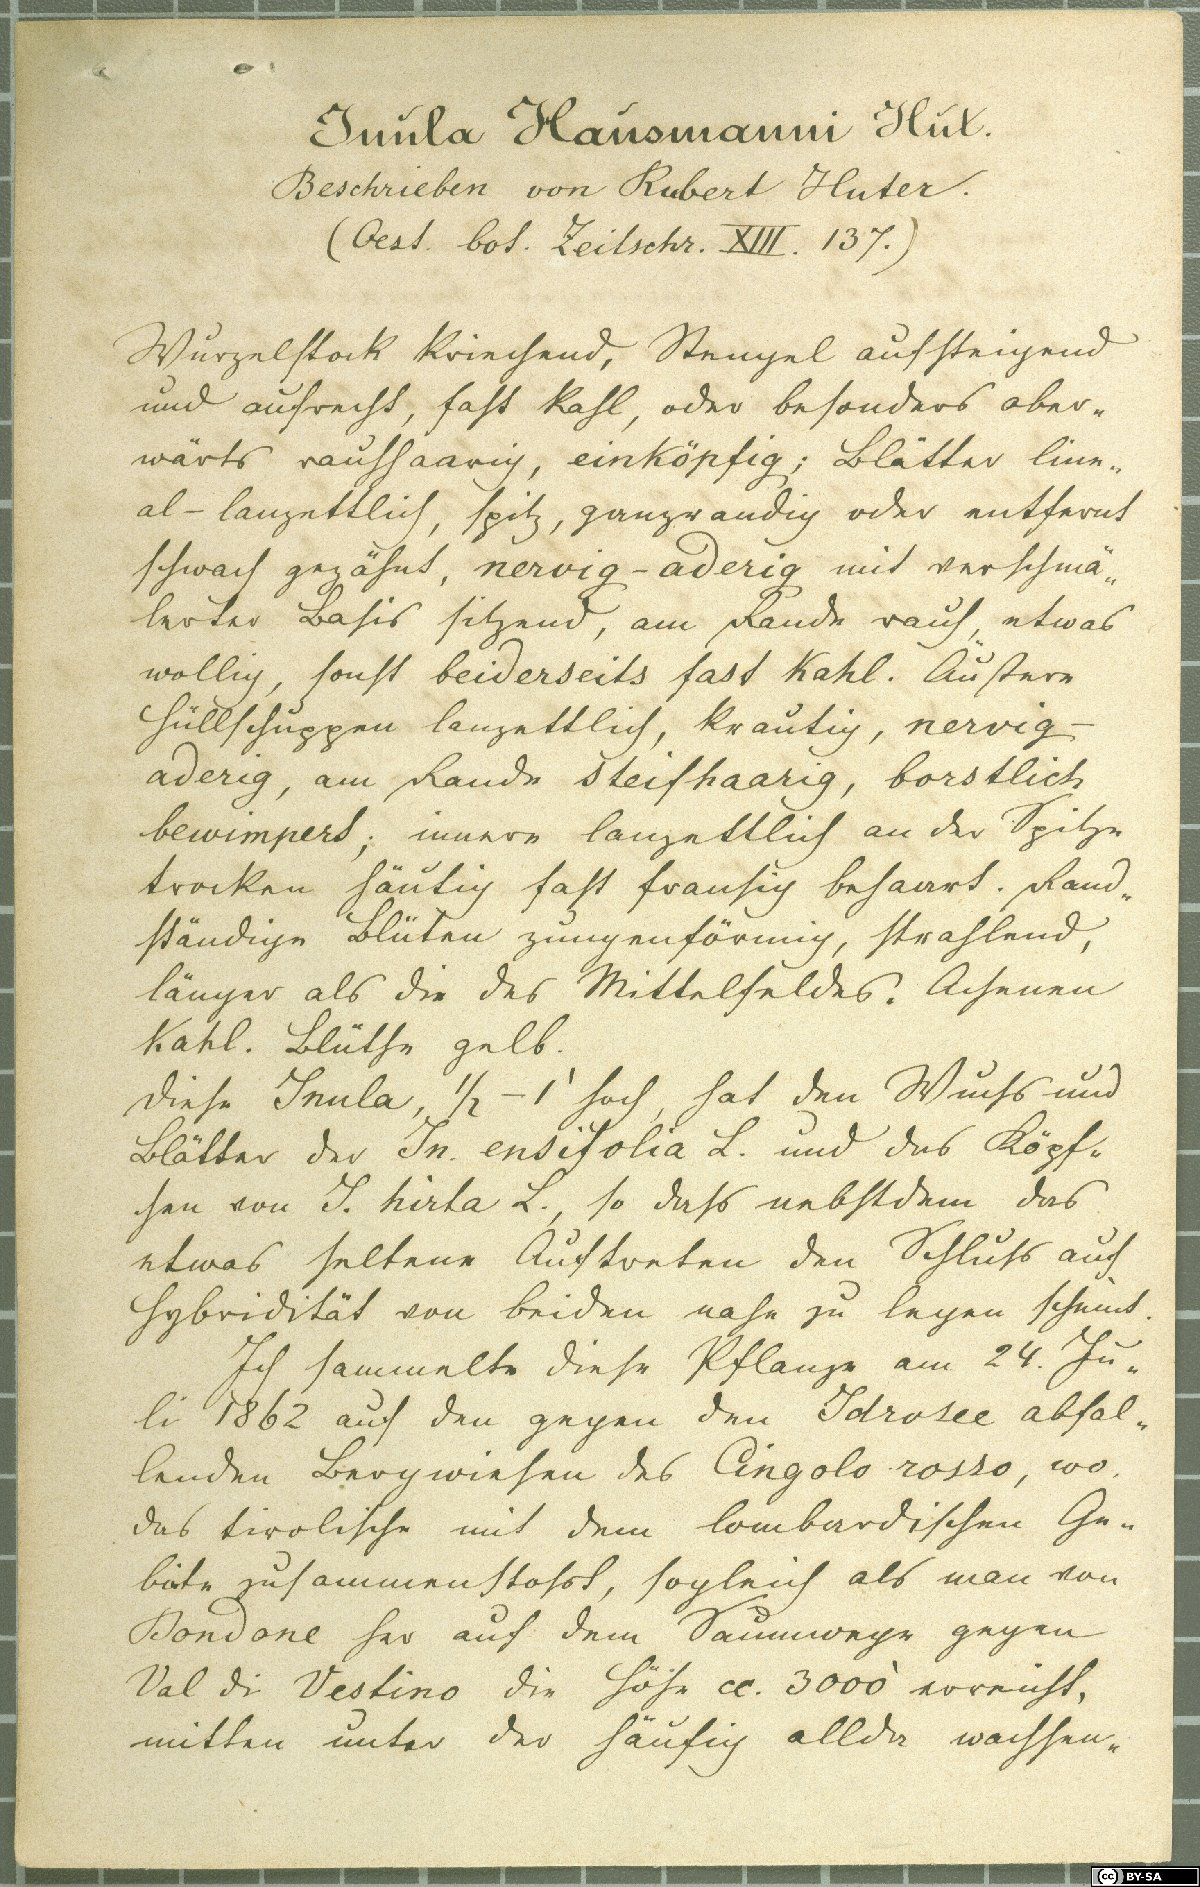 Inula Hausmanni Hut.
Beschrieben von Rubert Huter.
(Oest. bot. Zeitschr. XIII. 137.)
Wurzelstock kriechend, Stengel aufsteigend
und aufrecht, fast kahl, oder besonders ober-
wärts rauhhaarig, einköpfig; Blätter line-
al-lanzettlich, spitz, ganzrandig oder entfernt
schwach gezähnt, nervig-aderig mit verschmä-
lerter Basis sitzend, am Rande rauh, etwas
wollig, sonst beiderseits fast kahl. Äußere
Hüllschuppen lanzettlich, krautig, nervig-
aderig, am Rande steifhaarig, borstlich
bewimpert; innere lanzettlich an der Spitze
trocken häutig fast fransig behaart. Rand-
ständige Blüten zungenförmig, strahlend,
länger als die des Mittelfeldes. Achenen
kahl. Blüthe gelb.
Diese Inula, 1/2-1' hoch, hat den Wuchs und
Blätter der In. ensifolia L. und das Köpf-
chen von I. hirta L., so daß nebstdem das
etwas seltene Auftreten den Schluß auf
Hybridität von beiden nahe zu legen scheint.
Ich sammelte diese Pflanze am 24. Ju-
li 1862 auf den gegen den Idrosee abfal-
lenden Bergwiesen des Cingolo rosso, wo
das tirolische mit dem lombardischen Ge-
biete zusammenstosst, sogleich als man von
Bondone her auf dem Saumwege gegen
Val di Vestino die Höhe cc. 3000' erreicht,
mitten unter der häufig allda wachsen-
BY-SA